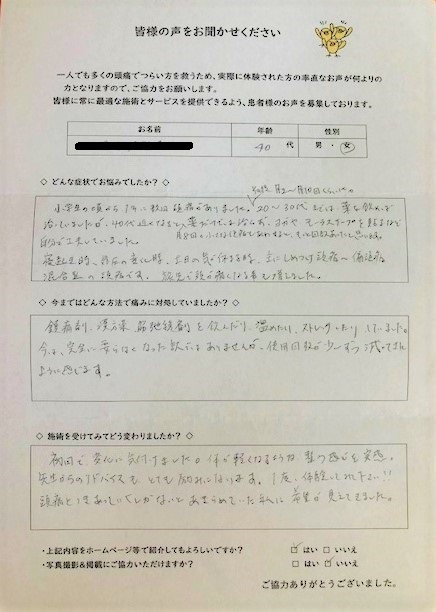 皆様の声をお聞かせください
一人でも多くの頭痛でつらい方を救うため、実際に体験された方の率直なお声が何よりの
力となりますので、ご協力をお願いします。
皆様に常に最適な施術とサービスを提供できるよう、患者様のお声を募集しております。
お名前 年齢 性別
40 代 男・女
◇ どんな症状でお悩みでしたか? ◇
小学生の頃から1年に数回頭痛がありました。20〜30代までは薬を飲めば
治っていましたが、40代近くなると、薬だけでは治らず、
自分で工夫していました。
寝起き時、天気の変化時、土日の気が休まる時、主にしめつけ頭痛〜偏頭痛
混合型の頭痛です。
◇ 今まではどんな方法で痛みに対処していましたか? ◇
鎮痛剤、漢方薬、筋弛緩剤を飲んだり、温めたり、ストレッチしたりしていました。
今は、完全に要らなくなった訳ではありませんが、使用回数が少しずつ減ってきた
ように感じます。
◇ 施術を受けてみてどう変わりましたか? ◇
初回で、変化に気付けました。体が軽くなるような、整う感じを実感。
先生からのアドバイスも、とても励みになります。1度、体験してみて下さい!!
頭痛とつきあっていくしかないとあきらめていた私に希望が見えてきました。
・上記内容をホームページ等で紹介してもよろしいですか? はい いいえ
・写真撮影&掲載にご協力いただけますか? はい いいえ
ご協力ありがとうございました。